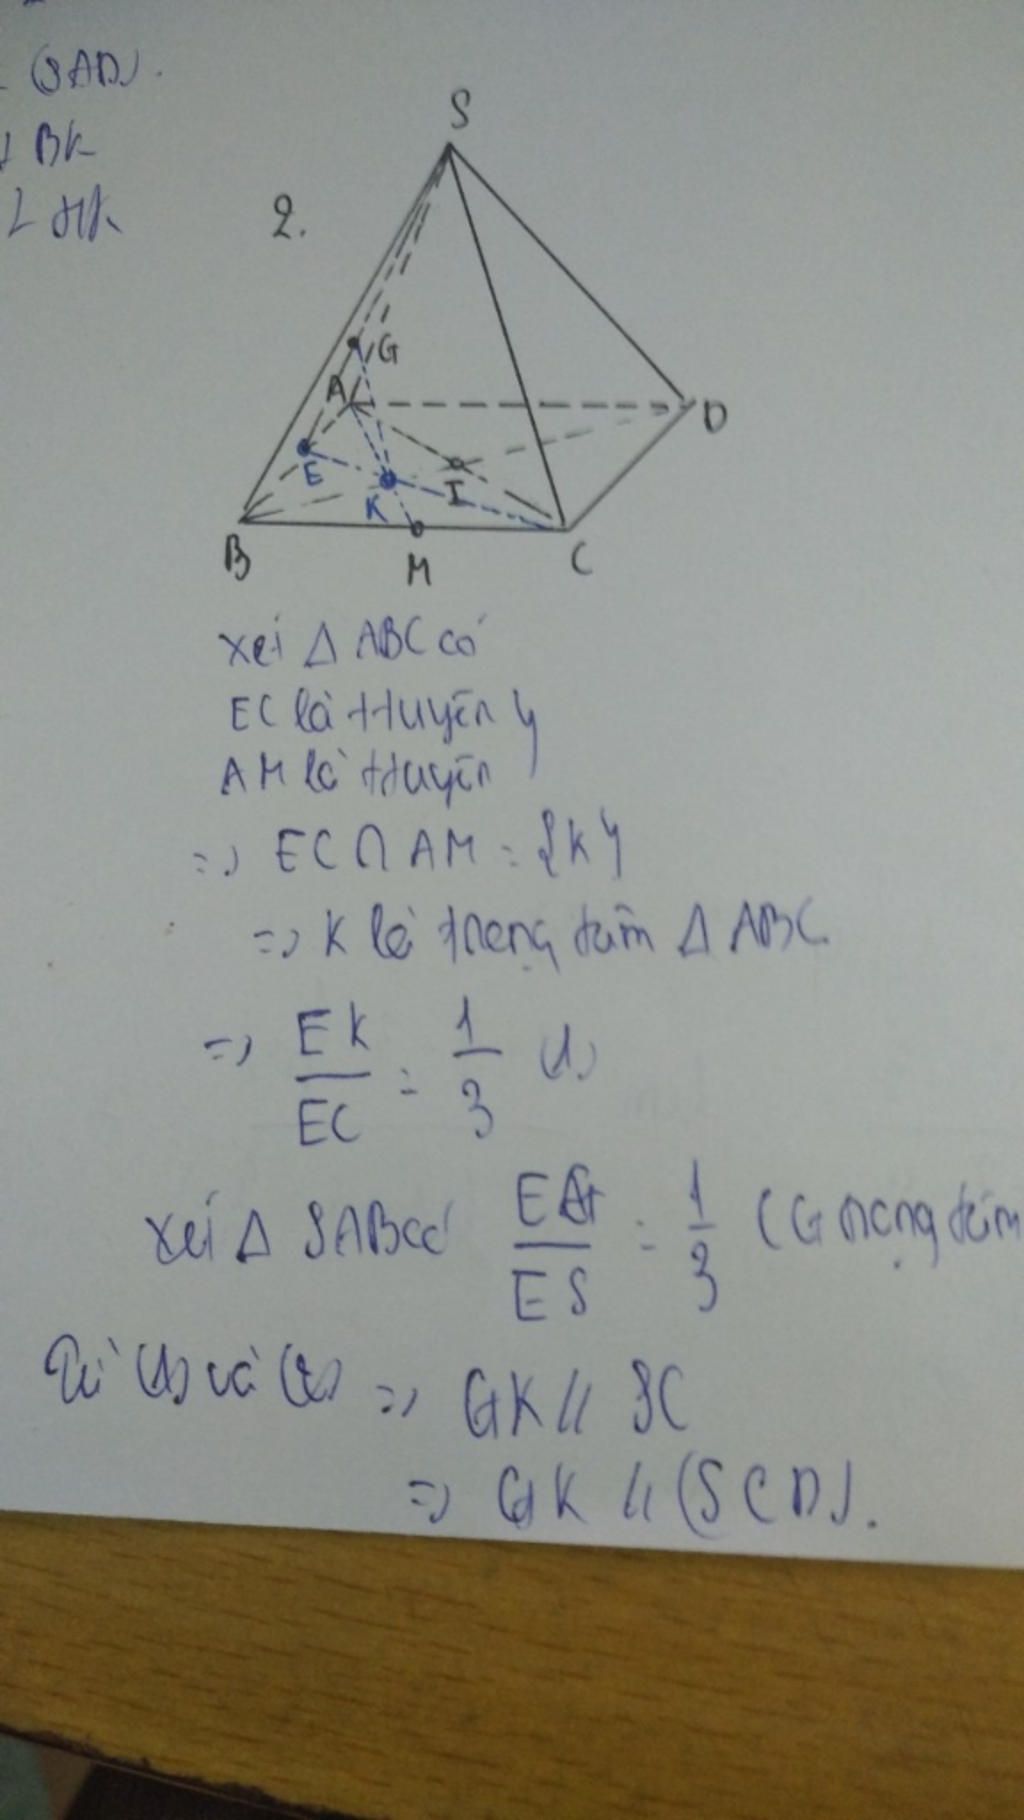 (SAD).
BK
⊥ HK
2.
S
G
A
D
E
K
I
B
M
C
xét Δ ABC có
EC là ttuyến }
AM là ttuyến
=> EC ∩ AM = {K}
=> K là trọng tâm Δ ABC
=> EK/EC = 1/3 (1)
xét Δ SAB có EG/ES = 1/3 (G trọng tâm
Từ (1) và (2) => GK // SC
=> GK // (SCD).